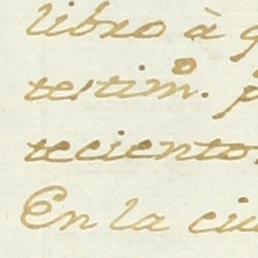 libro à
testimº.
reciento
En la ciu